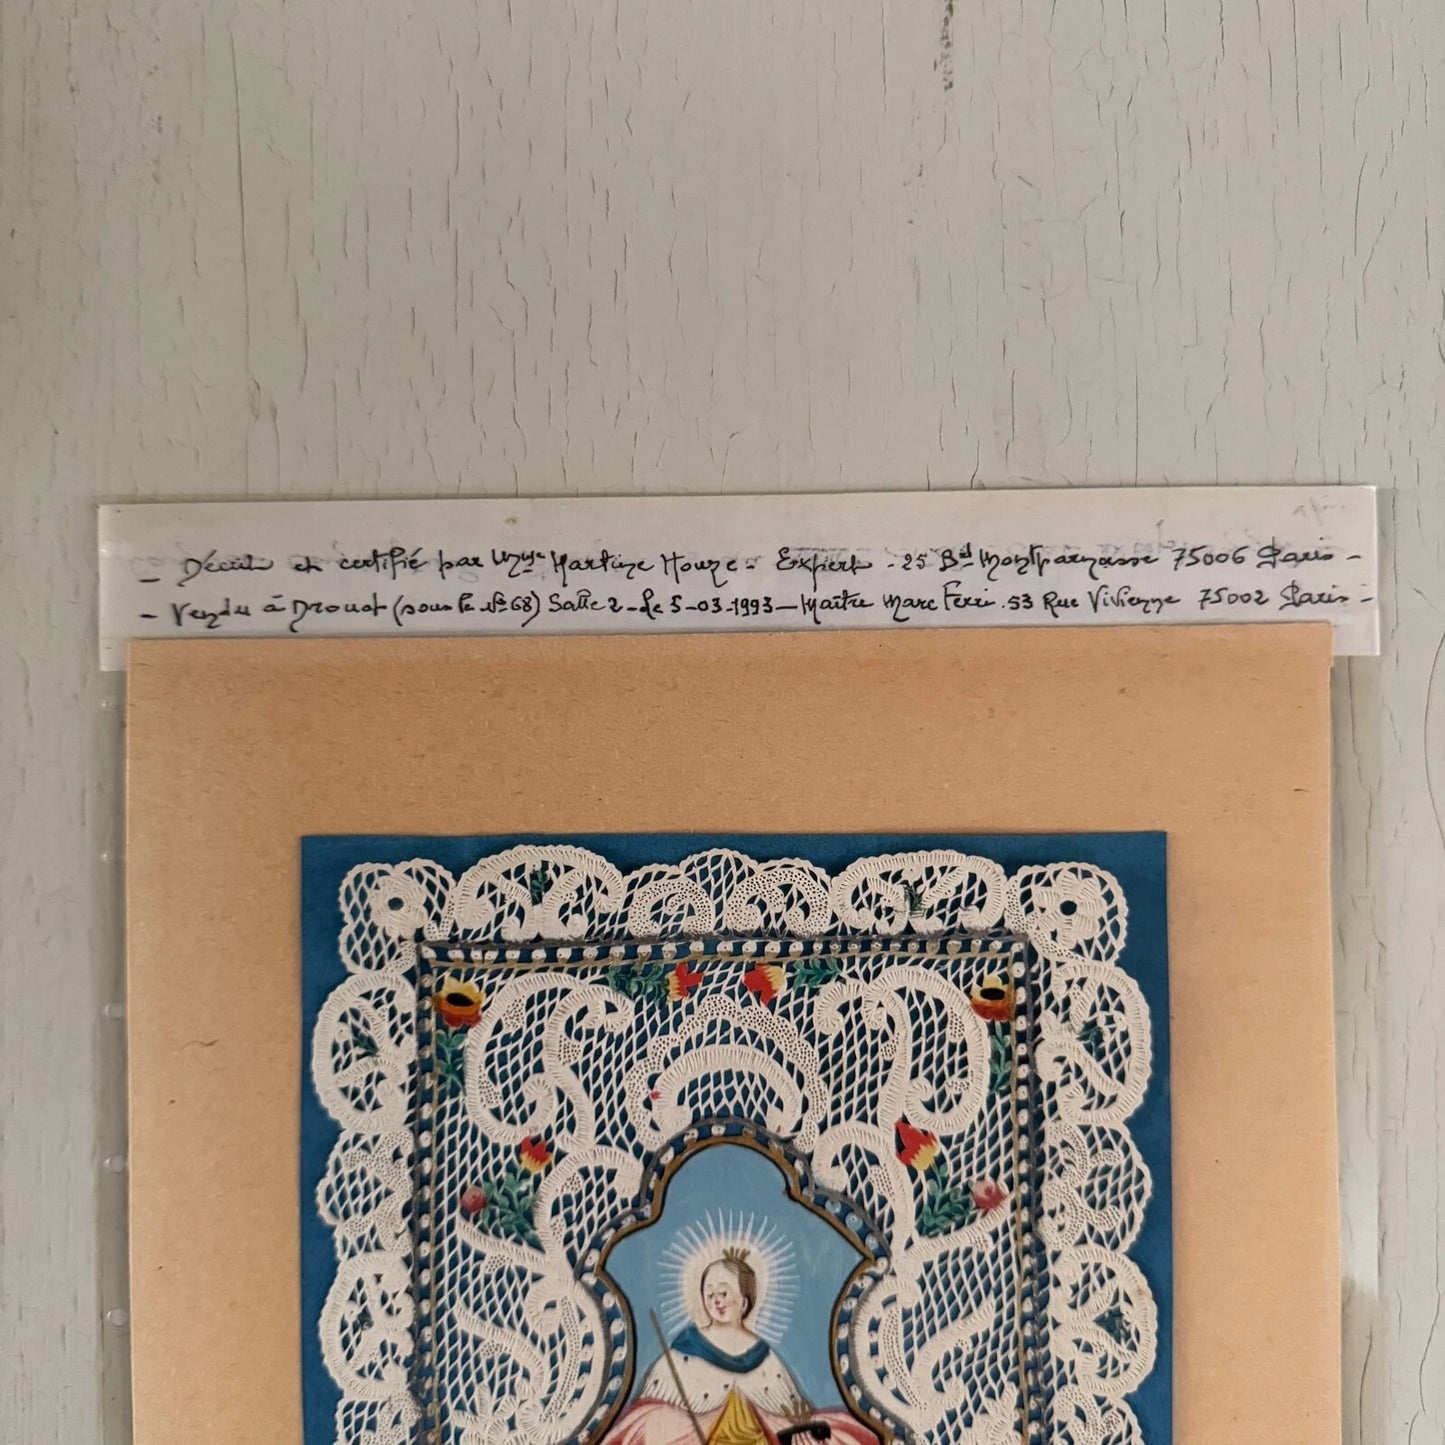 - Décrite et certifié par Mme Martine Houze - Expert - 25 Bd Montparnasse 75006 Paris -
- Vendu à Drouot (sous le N° 68) Salle 2 - le 5-03-1993 - Maître Marc Ferri . 53 Rue Vivienne 75002 Paris -